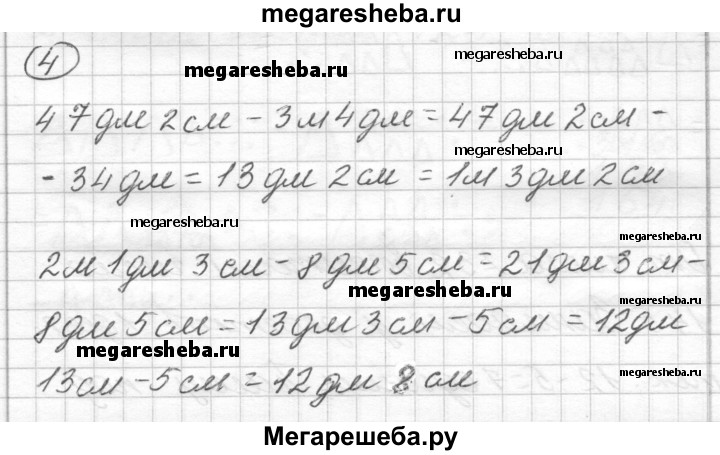 megaresheba.ru
4
megaresheba.ru
megaresheba.ru
47 дм 2 см - 3 м 4 дм = 47 дм 2 см -
megaresheba.ru
- 34 дм = 13 дм 2 см = 1м 3 дм 2 см
megaresheba.ru
megaresheba.ru
2 м 1 дм 3 см - 8 дм 5 см = 21 дм 3 см -
megaresheba.ru
megaresheba.ru
8 дм 5 см = 13 дм 3 см - 5 см = 12 дм
megaresheba.ru
megaresheba.ru
13 см - 5 см = 12 дм 8 см
Мегарешеба.ру